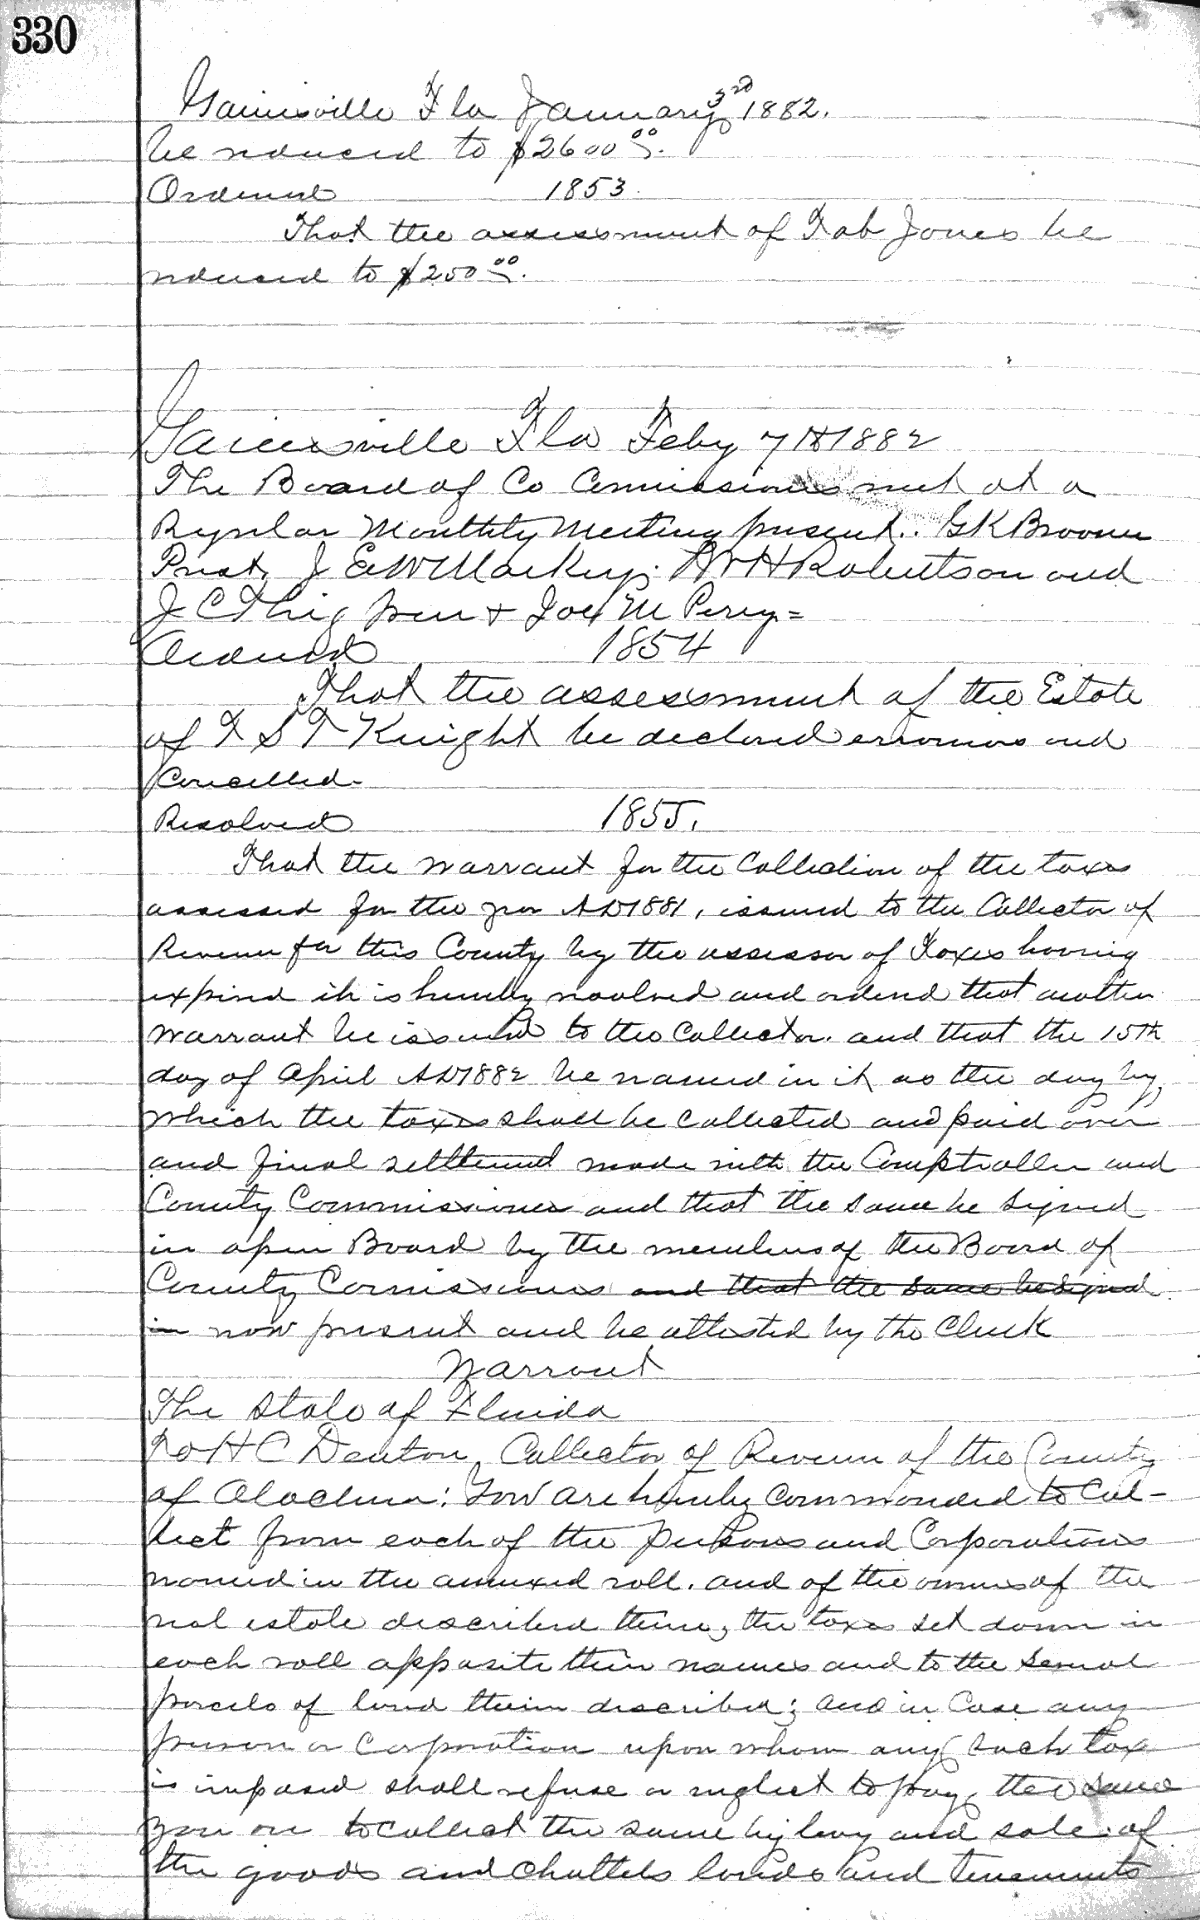 330
Gainesville Fla January 3rd 1882.
be reduced to $2600 00.
Ordered 1853.
That the assessment of Tab Jones be
reduced to $200 00.
Gainesville Fla Feby 7th 1882
The Board of Co Comissioners met at a
Regular Monthly Meeting present.. G K Broome
Prest, J E W Markey. W H Robertson and
J C Thigpen & Joe M Perry =
Ordered 1854
That the assessment of the Estate
of T S T Knight be declared erronious and
Cancelled.
Resolved 1855.
That the warrant for the Collection of the taxes
assessed for the year AD 1881, issued to the Collector of
Revenue for this County by the assessor of Taxes having
expired it is hereby resolved and ordered that another
warrant be issued to the Collector. and that the 15th
day of April AD 1882 be named in it as the day by
which the taxes shall be collected and paid over
and final settlement made with the Comptroller and
County Commissioners and that the same be signed
in open Board by the members of the Board of
County Comissioners and that the same be signed
in now present and be attested by the Clerk
Warrant
The State of Florida
To H C Denton, Collector of Revenue of the County
of Alachua: You are hereby Commanded to Col-
lect from each of the persons and Corporations
named in the annexed roll. and of the owners of the
real estate described therein, the taxes set down in
each roll opposite their names and to the several
parcels of land therein described; and in Case any
person or Corporation upon whom any such tax
is imposed shall refuse or neglect to pay, the same
you are to collect the same by levy and sale of
the goods and chattels lands and tenements